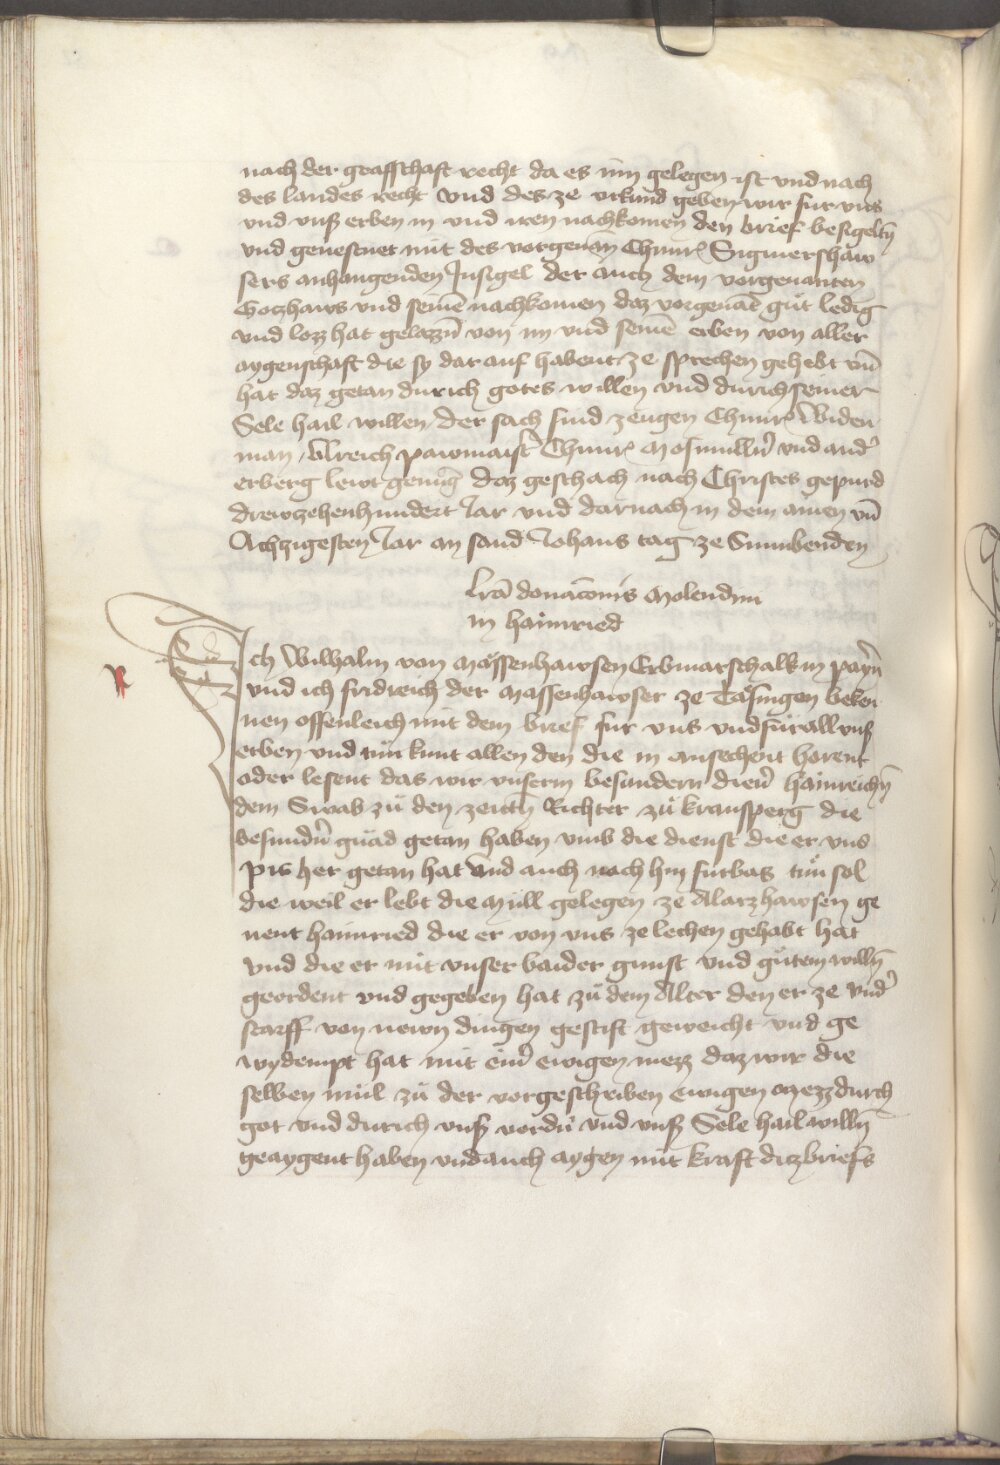 nach der graffschaft recht da es inn gelegen ist vnd nach
des landes recht Vnd des ze vrkund geben wir fur vns
vnd vnß erben in vnd iren nachkomen den brief besigeltñ
vnd geuestnet mit des vorgenan̄ Chunr̄ Sigmershaw
sers anhangenden Insigel der auch dem vorgenanten
Gotzhaws vnd seinē nachkomen daz vorgenāt gůt ledig
vnd lozz hat gelazzñ von im vnd seinē erben von aller
aygenschaft die sy dar auf habent ze sprechen gehebt vn̄
hat daz getan durich gotes willen vnd durich seiner
Sele hail willen / der sach sind zeugen Chunr̄ Widen
man / Vlreich pawmaist̄ Chunr̄ Mosmullñ vnd and̄
erberg lewt genug daz geschach nach Christes gepurd
drewzehenhundert Jar vnd darnach in dem ainen vn̄
Achzigesten Jar an sand Johans tag ze Sunnbenden
lrā donacōnis Molendini
in hainried
Ich Wilhalm von Mässenhawsen Erbmarschalk in payrñ
vnd ich fridreich der Massenhawser ze Täsingen beken
nen offenleich mit dem brief fur vns vnd für all vnß
erben vnd tün kunt allen den die in ansechent horent
oder lesent das wir vnserm besundern dienr̄ hainreichñ
dem Swab zů den zeitñ Richter zů kransperg die
besundr̄ gnad getan haben vmb die dienst die er vns
pis her getan hat Vnd auch noch hin fürbas tůn sol
die weil er lebt die Müll gelegen ze Alatzhawsen ge
nent hainried die er von vns ze lechen gehabt hat
vnd die er mit vnser baider gunst vnd gůtem willñ
geordent vnd gegeben hat zů dem Alter den er ze vnd̄
starff von newn dingen gestift geweicht vnd ge
wydempt hat mit einr̄ ewigen mezz daz wir die
selben mül zů der vorgeschriben ewigen Mezz durch
got vnd durich vnß vordr̄ vnd vnß Sele hail willñ
geaygent haben vnd auch aygen mit kraft ditz briefs